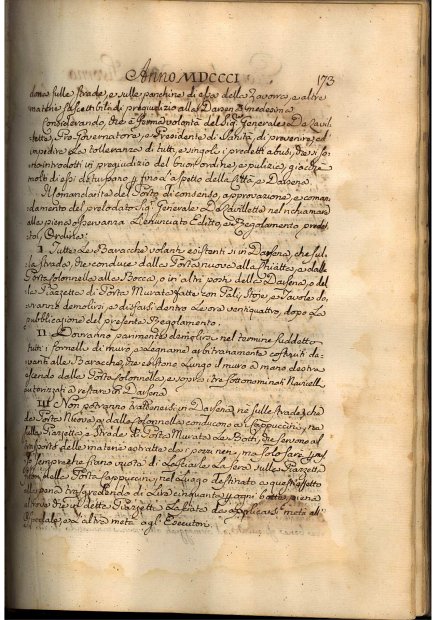 Anno MDCCCI
173
dona sulle strade, e sulle panchine di essa della Zavorra, e altre
materie suscettibili di pregiudizio alla Darsena medesima
Considerando, che è ferma volontà del Sig. Generale La Vil-
letta, Pro-Governatore, e Presidente di Sanità, di prevenire, ed
impedire la tolleranza di tutti, e singoli i predetti abusi, che si so-
no introdotti in pregiudizio del buon'ordine, e pulizia, giacchè
molti di essi deturpano fino l'aspetto della Città, e Darsena
Il Comandante del Porto di consenso, approvazione, e coman-
damento del prelodato Sig. Generale La Villetta nel richiamare
alla piena osservanza l'enunciato Editto, e Regolamento predet-
to, Ordina:
I. Tutte le Baracche volanti esistenti si in Darsena, che sul-
la strada, che conduce dalla Porta nuova alla Chiatta, e dalle
Porta Colonnella alla Bocca, o in altri posti della Darsena, o del-
la Piazzetta di Porta Murata fatte con Pali, Stoje, e Tavole do-
vranno demolirsi, e disfarsi dentro le ore ventiquattro, dopo la
pubblicazione del presente Regolamento.
II. Dovranno parimente demolirsi nel termine suddetto
tutti i fornelli di muro, e legname arbitrariamente costruiti da-
vanti alle Baracche, che esistono lungo il muro a mano destra
escendo dalla Porta Colonnella, e sopra i tre sottonominati Navicelli
autorizzati a restare in Darsena
III. Non potranno trattenersi in Darsena, nè sulle strade, che
da Porta Nuova, e dalla Colonnella conducono a' Cappuccini, nè
sulla Piazzetta, e Strade di Porta Murata le Botti, che servono al
trasporto delle materie estratte da' pozzi neri, ma solo sarà
sempre che siano vuote di lasciarle la sera sulla Piazzetta
fuori della Porta Cappuccini, nel luogo destinato a quest'effetto
alla pena trasgredendo di Lire cinquanta ogni botte, piena
altrove che in detta Piazzetta lasciata da applicarsi metà all'
Spedale, e l'altra metà agli Esecutori.